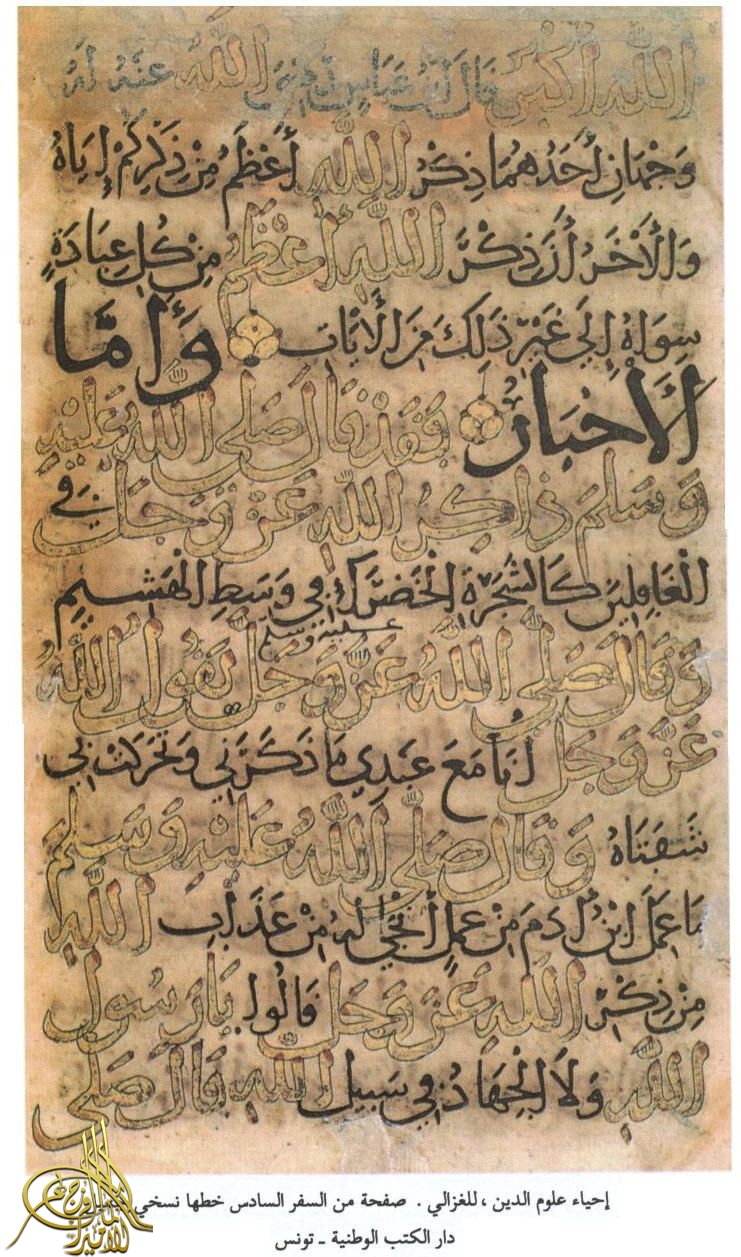 الله أكبر قال ابن عباس رضي الله عنه له
وجهان أحدهما ذكر الله أعظم من ذكركم إياه
والأخر أن ذكر الله أعظم من كل عبادة
سواه إلى غير ذلك من الأيات وأما
الأخبار فقد قال صلى الله عليه
وسلم ذاكر الله عز وجل في
الغافلين كالشجرة الخضراء في وسط الهشيم
عليه وسلم
وقال صلى الله عز وجل يقول الله
عز وجل أنا مع عبدي ما ذكرني وتحركت بي
شفتاه وقال صلى الله عليه وسلم
ما عمل ابن أدم من عمل أنجى له من عذاب الله
من ذكر الله عز وجل قالوا يا رسول
الله ولا الجهاد في سبيل الله قال صلى
إحياء علوم الدين ، للغزالي . صفحة من السفر السادس خطها نسخي
دار الكتب الوطنية ـ تونس